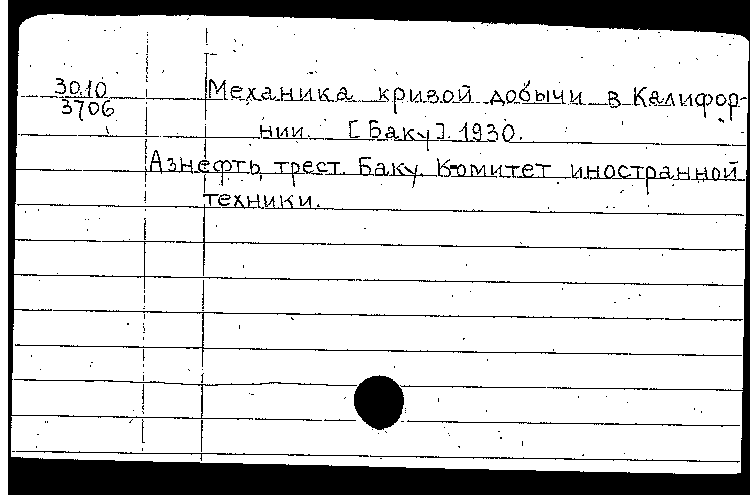 30.10
3706
Механика кривой добычи в Калифор-
нии. [Баку]. 1930.
Азнефть, трест. Баку. Комитет иностранной
техники.